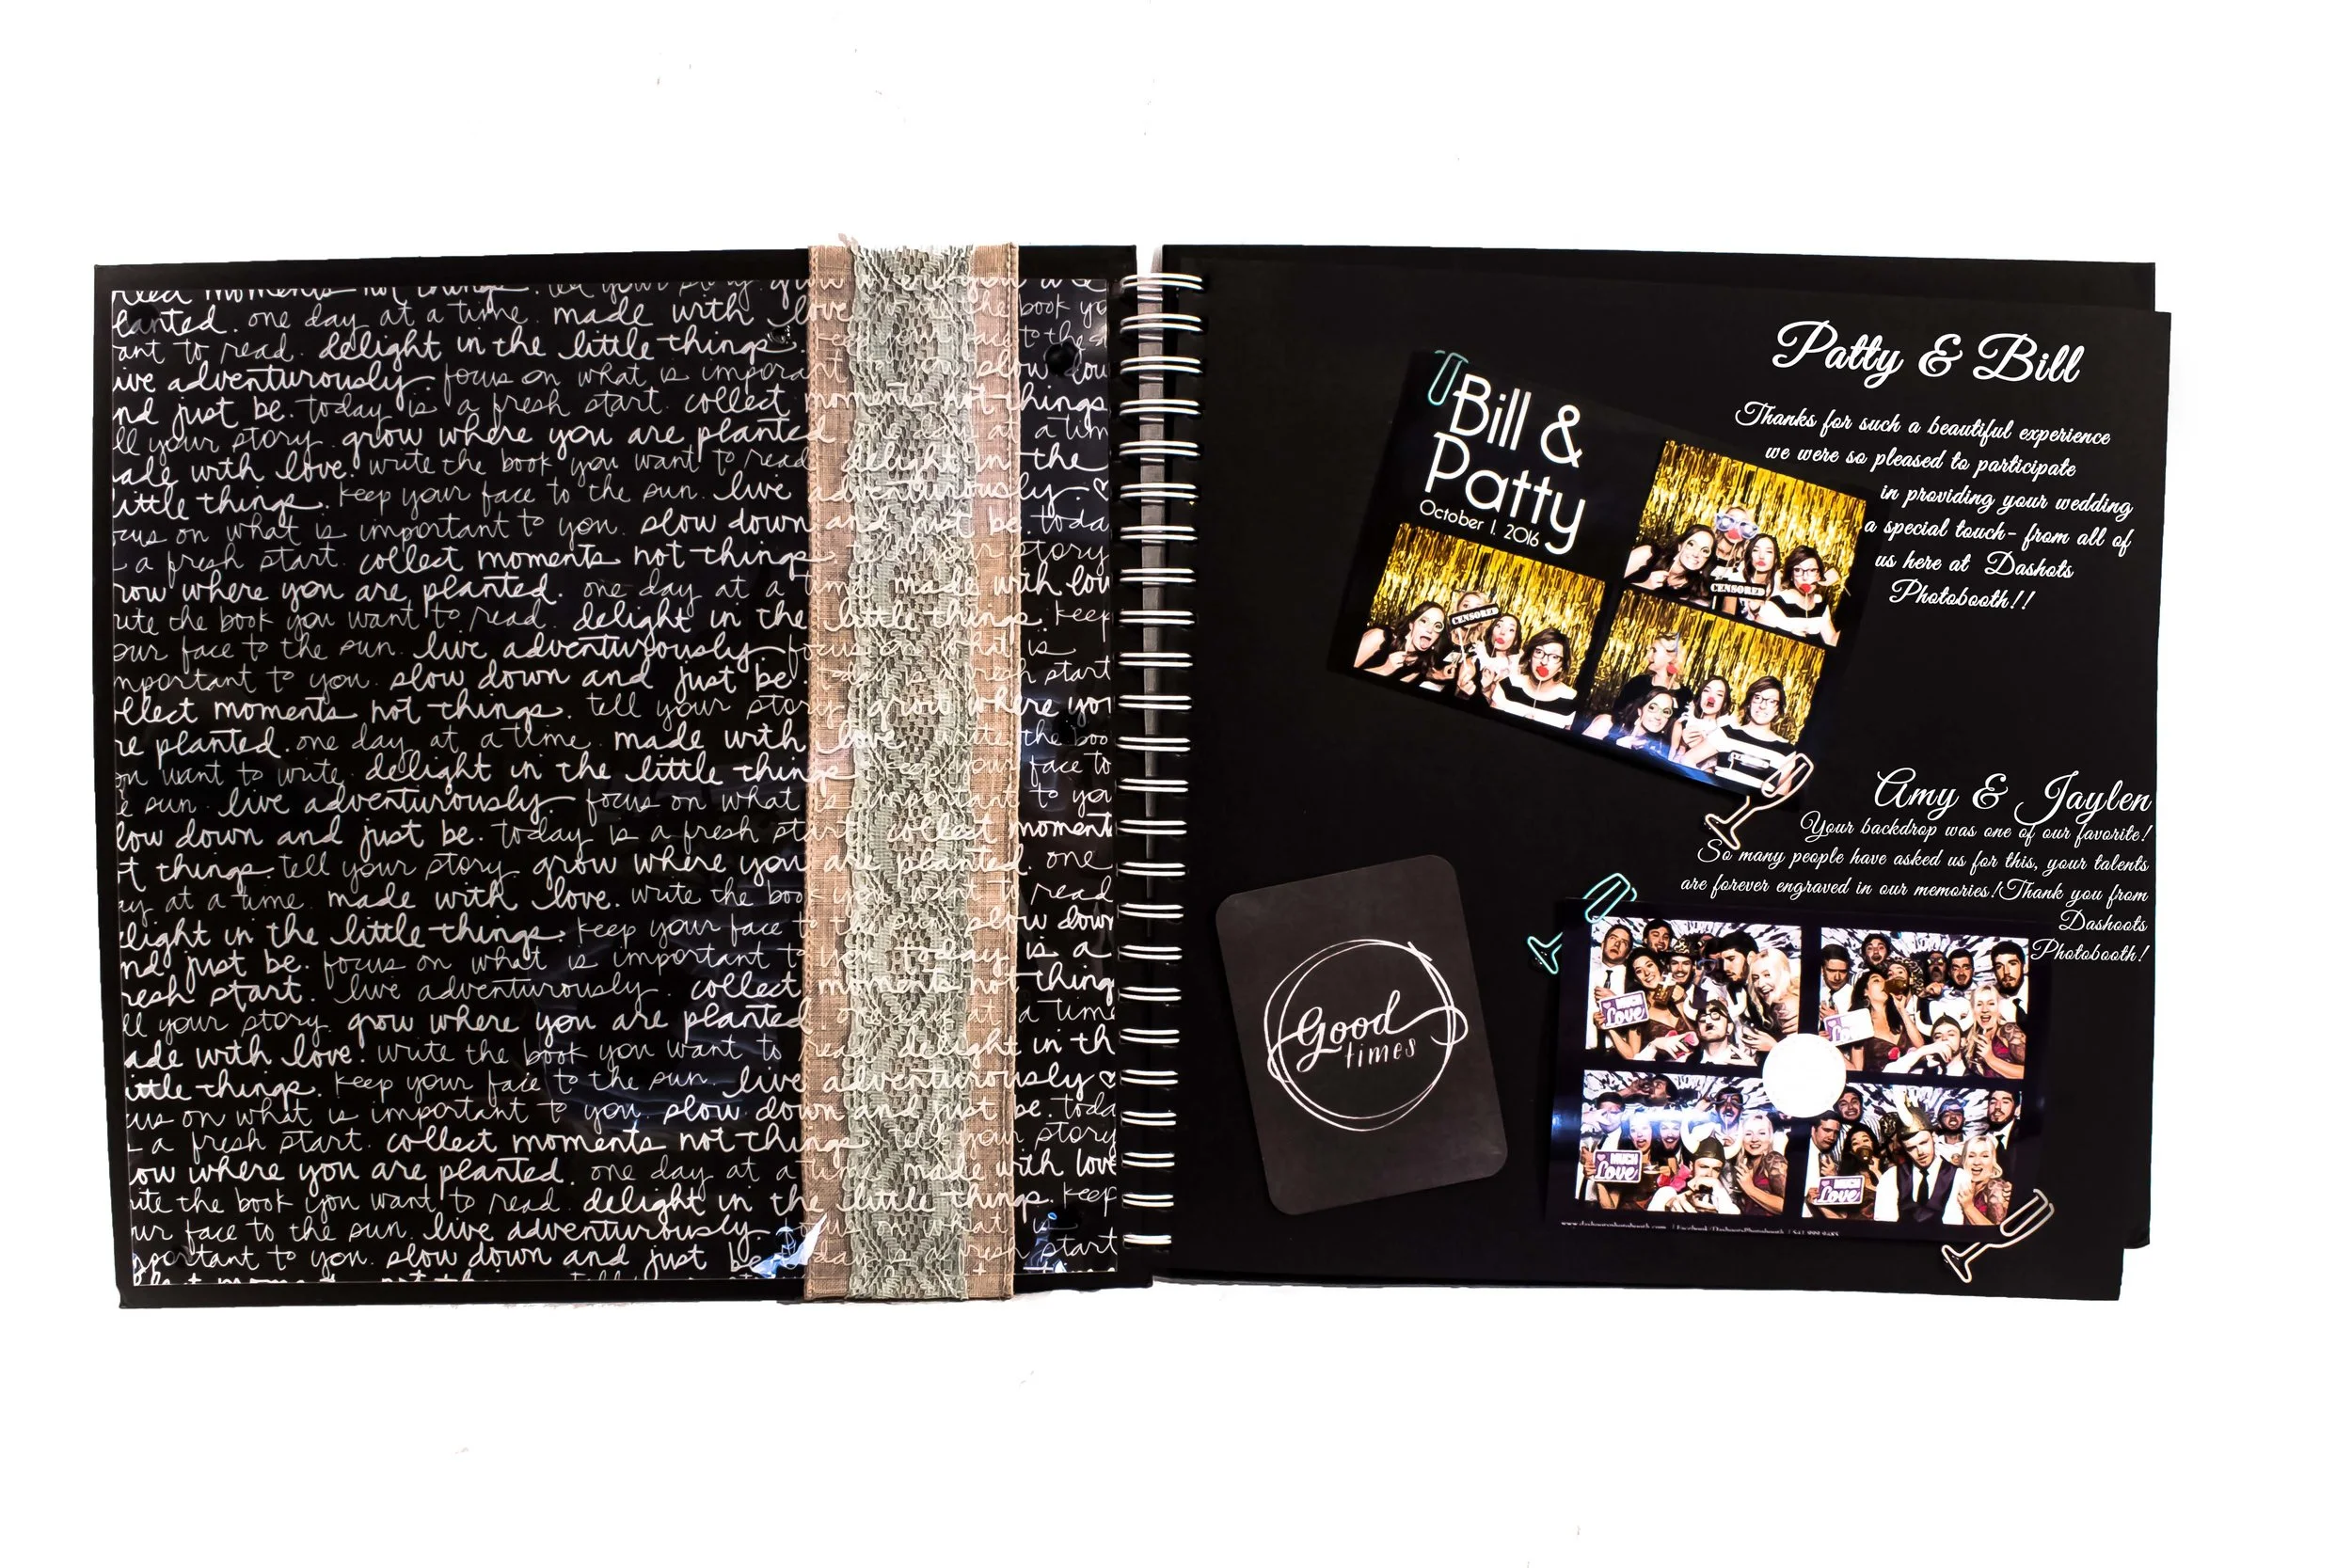 lanted. one day at a time. made with love the book yo
ant to read. delight in the little things. keep your face to the s
ive adventurously. focus on what is important slow dow
nd just be. today is a fresh start. collect moments not things
ll your story. grow where you are planted. one day at a tim
ade with love. write the book you want to read delight in the
little things. keep your face to the sun. live adventurously.
cus on what is important to you. slow down and just be. toda
a fresh start. collect moments not things. tell your story
row where you are planted. one day at a time made with lov
ite the book you want to read. delight in the little things. keep
our face to the sun. live adventurously. focus on what is
mportant to you. slow down and just be. today is a fresh start
ollect moments not things. tell your story grow where you
re planted. one day at a time. made with love write the boo
ou want to write. delight in the little things keep your face to
e sun. live adventurously. focus on what is important to you
low down and just be. today is a fresh start collect moment
t things. tell your story. grow where you are planted. one
ay at a time. made with love. write the book you want to read
elight in the little things. keep your face to the sun. slow down
nd just be. focus on what is important to you today is a
resh start. live adventurously. collect moments not thing
ll your story. grow where you are planted. one day at a time
ade with love. write the book you want to read delight in th
ittle things. keep your face to the sun. live adventurously
cus on what is important to you. slow down and just be. toda
a fresh start. collect moments not things tell your story
ow where you are planted. one day at a time made with love
ite the book you want to read. delight in the little things. keep
ur face to the sun. live adventurously. focus on what is
portant to you. slow down and just be. today is a fresh start
Bill &
Patty
October 1, 2016
CENSORED
CENSORED
Patty & Bill
Thanks for such a beautiful experience
we were so pleased to participate
in providing your wedding
a special touch- from all of
us here at Dashots
Photobooth!!
Amy & Jaylen
Your backdrop was one of our favorite!
So many people have asked us for this, your talents
are forever engraved in our memories! Thank you from
Dashoots
Photobooth!
Good
times
MUCH
Love
MUCH
Love
MUCH
Love